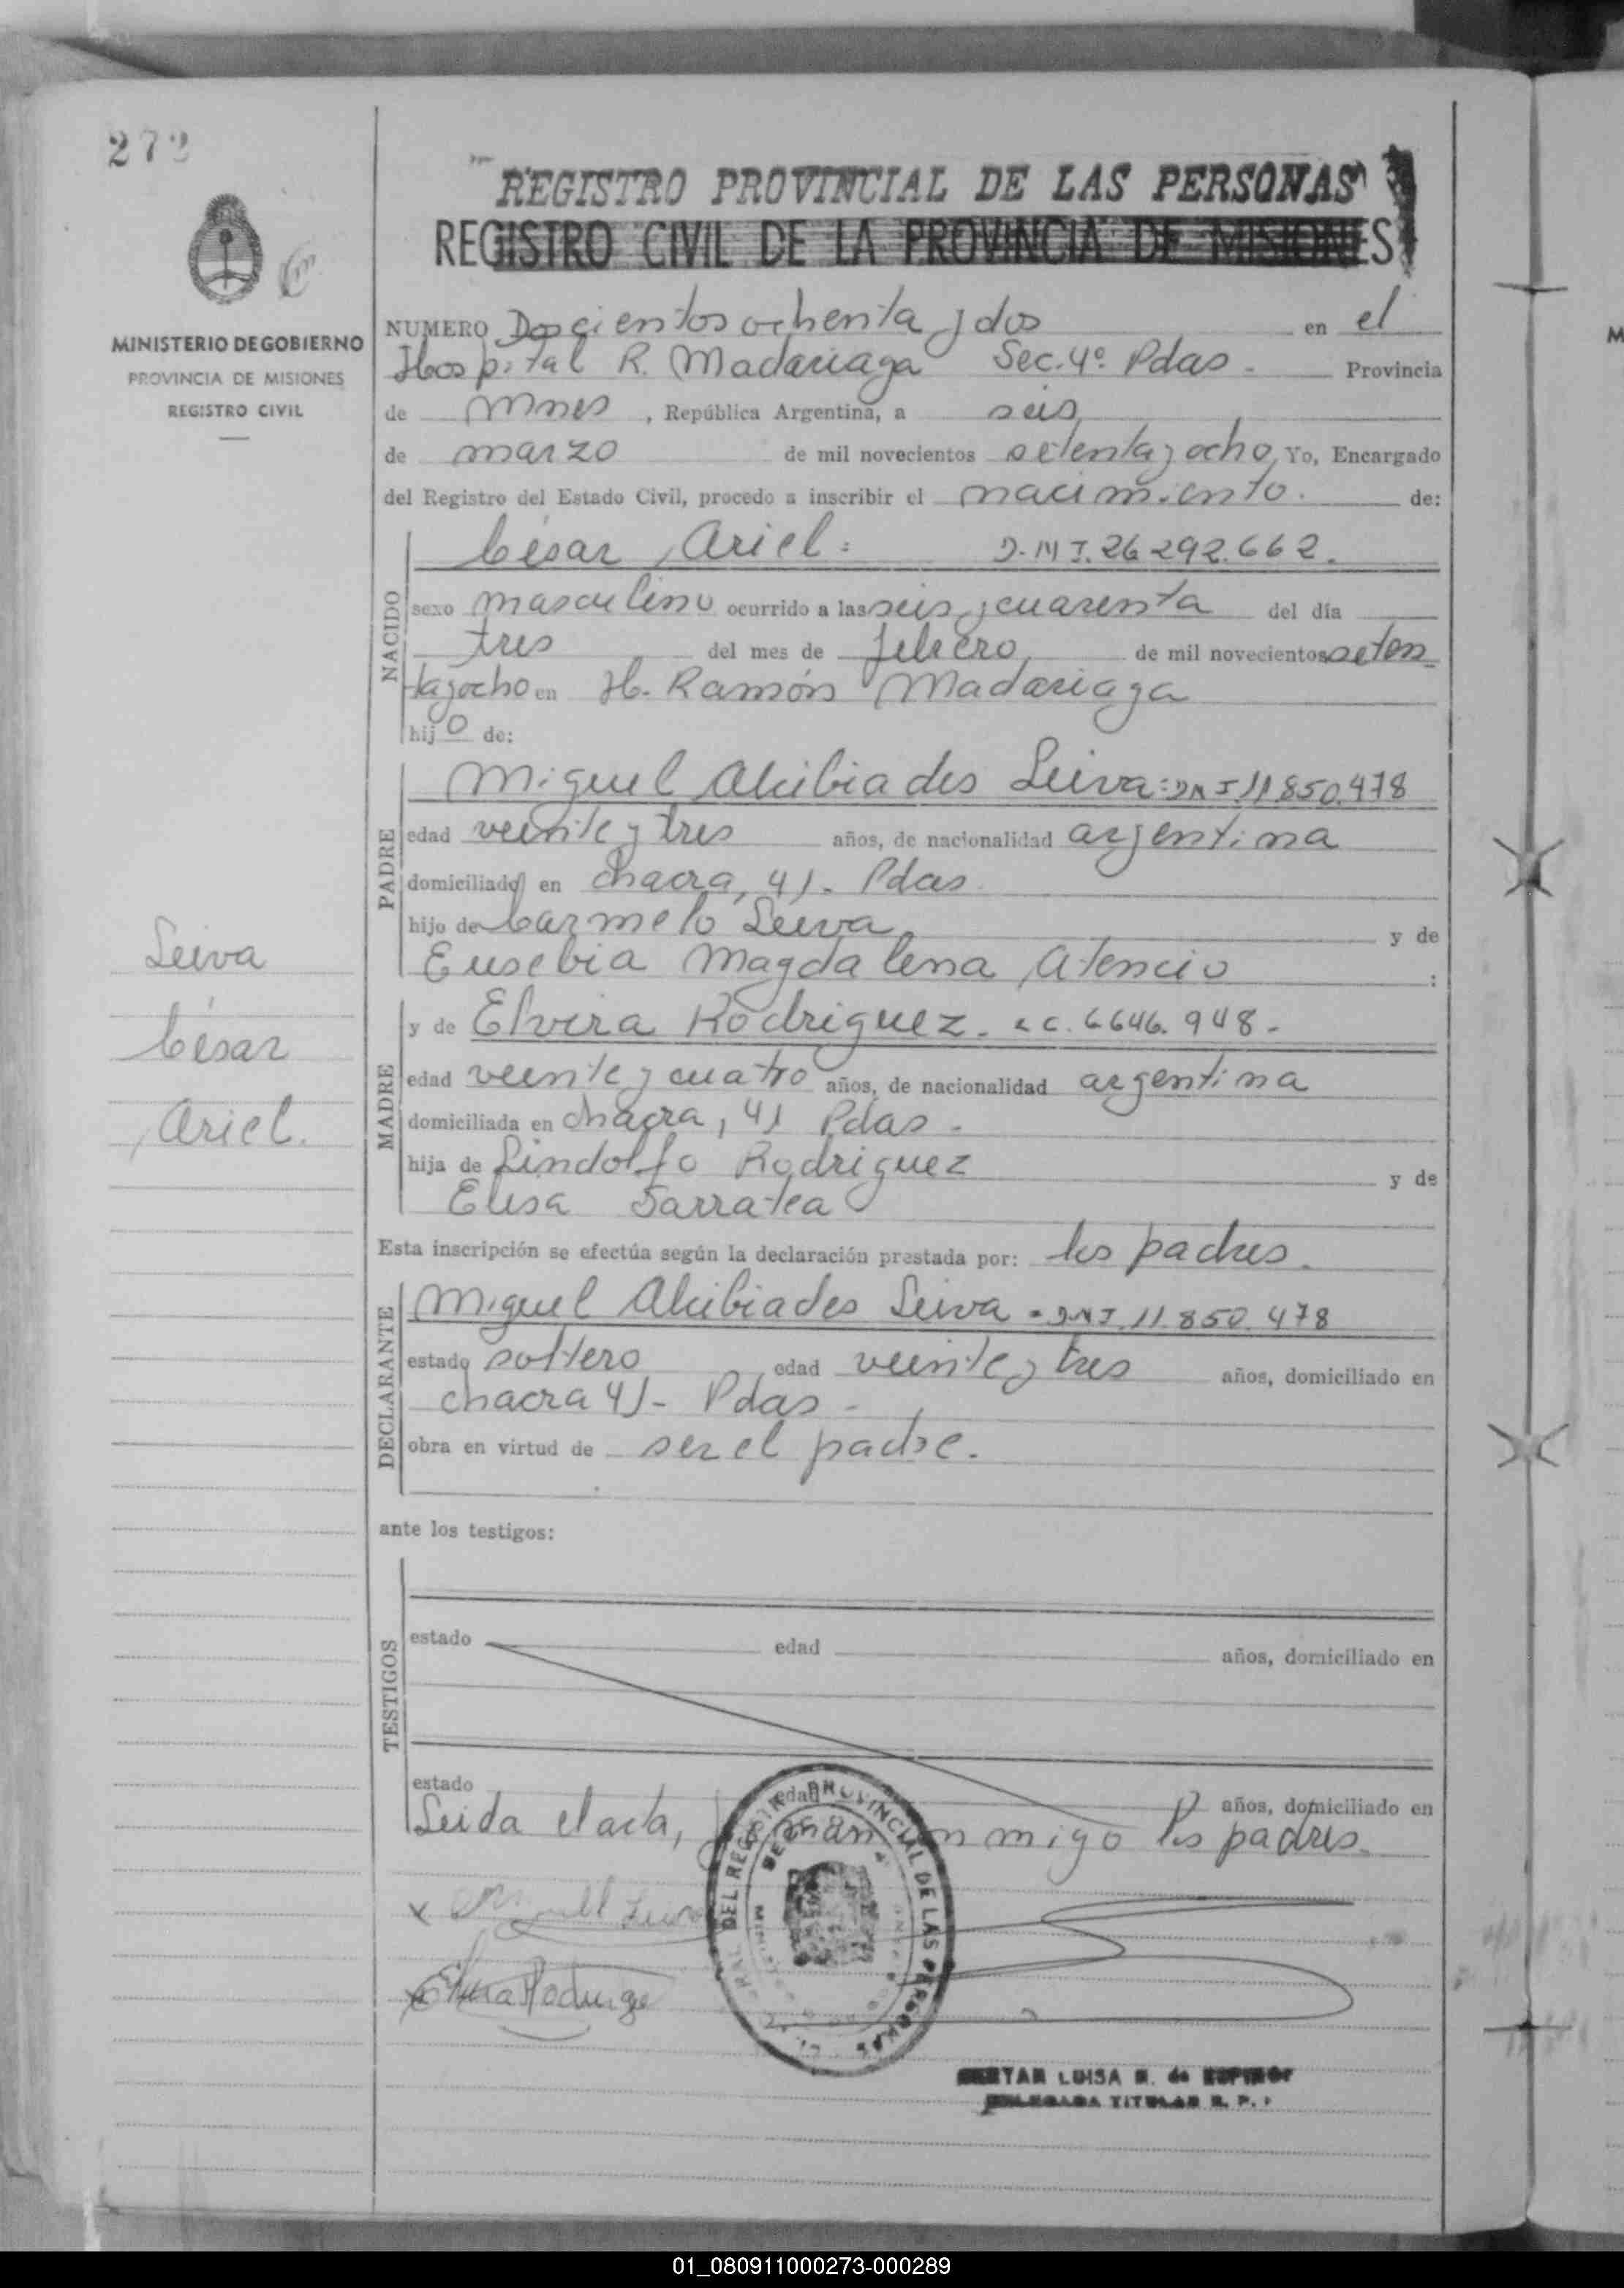 272
REGISTRO PROVINCIAL DE LAS PERSONAS
REGISTRO CIVIL DE LA PROVINCIA DE MISIONES
MINISTERIO DE GOBIERNO
PROVINCIA DE MISIONES
REGISTRO CIVIL
NUMERO Doscientos ochenta y dos en el
Hospital R. Madariaga Sec. 4º Pdas - Provincia
de Mnes, República Argentina, a seis
de marzo de mil novecientos setenta y ocho, Yo, Encargado
del Registro del Estado Civil, procedo a inscribir el nacimiento. de:
NACIDO
César Ariel: D.N.I. 26.292.662.
sexo masculino ocurrido a las seis y cuarenta del día
tres del mes de febrero, de mil novecientos seten
ta y ocho en H. Ramón Madariaga
hijo de:
PADRE
Miguel Alcibiades Leiva: DNI 11.850.478
edad veinte y tres años, de nacionalidad argentina
domiciliado en chacra, 41. Pdas.
hijo de Carmelo Leiva y de
Eusebia Magdalena Atencio :
Leiva
César
Ariel.
MADRE
y de Elvira Rodriguez. L C. 6646.948.
edad veinte y cuatro años, de nacionalidad argentina
domiciliada en chacra, 41 Pdas.
hija de Lindolfo Rodriguez y de
Elisa Sarratea
Esta inscripción se efectúa según la declaración prestada por: los padres.
DECLARANTE
Miguel Alcibiades Leiva - DNI. 11.850.478
estado soltero edad veinte y tres años, domiciliado en
chacra 41 - Pdas -
obra en virtud de ser el padre.
ante los testigos:
TESTIGOS
estado edad años, domiciliado en
estado edad años, domiciliado en
Leida el acta, firman conmigo los padres.
DEL REGISTRO PROVINCIAL DE LAS PERSONAS
x Miguel Leiva
x Elvira Rodrigue
LUISA
TITULAR R. P.
01_080911000273-000289